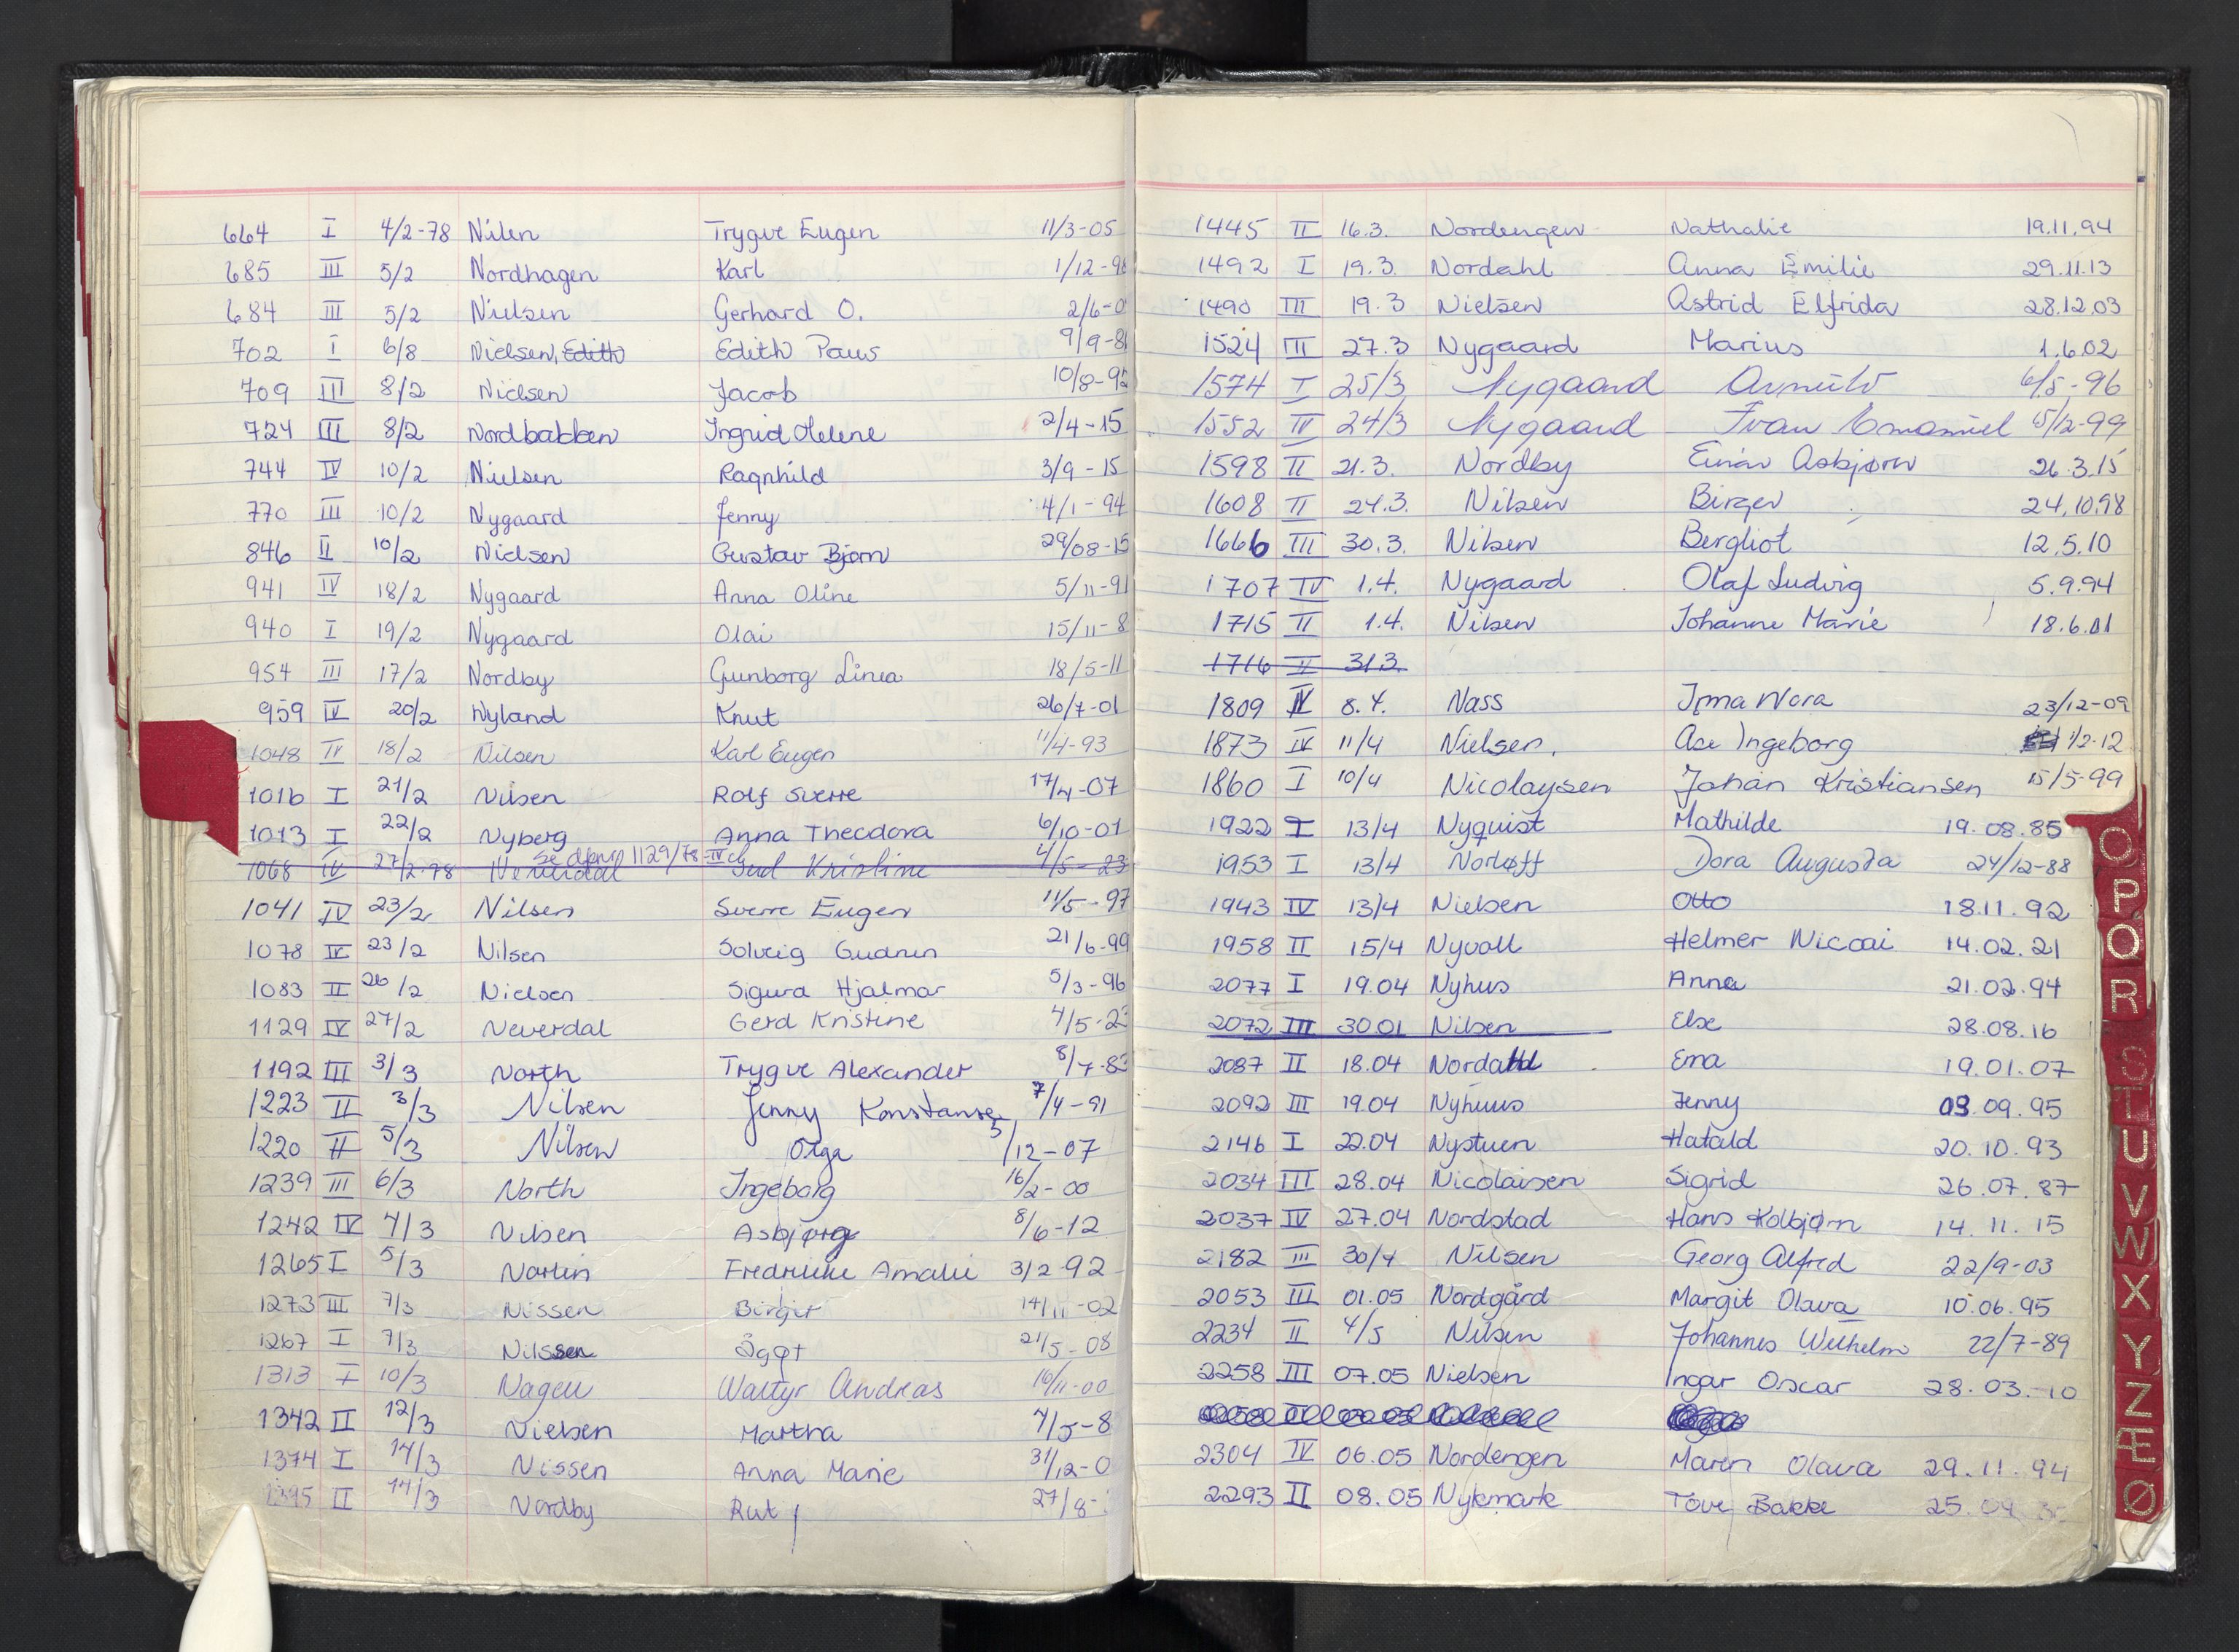 664 I 4/2-78 Nilen Trygve Eugen 11/3-05
685 III 5/2 Nordhagen Karl 1/12-9
684 III 5/2 Nielsen Gerhard O. 2/6-0
702 I 6/8 Nielsen, Edith Edith Paus 9/9-8
709 III 8/2 Nielsen Jacob 10/8-92
724 III 8/2 Nordbakken Ingrid Helene 2/4-15
744 IV 10/2 Nielsen Ragnhild 3/9-15
770 III 10/2 Nygaard Jenny 4/1-94
846 II 10/2 Nielsen Gustav Bjørn 29/08-15
941 IV 18/2 Nygaard Anna Oline 5/11-91
940 I 19/2 Nygaard Olai 15/11-8
954 III 17/2 Nordby Gunborg Linea 18/5-11
959 IV 20/2 Nyland Knut 26/7-01
1048 IV 18/2 Nilsen Karl Eugen 11/4-93
1016 I 21/2 Nilsen Rolf Sverre 17/4-07
1013 I 22/2 Nyberg Anna Theodora 6/10-01
se dpnr 1129/78-IV
1068 IV 27/2-78 Neverdal Gerd Kristine 4/5-23
1041 IV 23/2 Nilsen Sverre Eugen 11/5-97
1078 IV 23/2 Nilsen Solveig Gudrun 21/6-99
1083 II 26/2 Nielsen Sigurd Hjalmar 5/3-96
1129 IV 27/2 Neverdal Gerd Kristine 4/5-23
1192 III 3/3 North Trygve Alexander 8/7-83
1223 II 3/3 Nilsen Jenny Konstanse 7/4-91
1220 II 5/3 Nilsen Olga 5/12-07
1239 III 6/3 North Ingeborg 16/2-00
1242 IV 4/3 Nilsen Asbjørg 8/6-12
1265 I 5/3 Norlin Fredrikke Amalie 3/2 92
1273 III 7/3 Nissen Birgit 14/11-02
1267 I 7/3 Nilssen Ågot 21/5-08
1313 I 10/3 Nagell Waltyr Andreas 16/11-00
1342 II 12/3 Nielsen Martha 4/5-8
1374 I 14/3 Nissen Anna Marie 31/12-0
1395 II 14/3 Nordby Rut 27/8-
1445 II 16.3. Nordengen Nathalie 19.11.94
1492 I 19.3. Nordahl Anna Emilie 29.11.13
1490 III 19.3 Nielsen Astrid Elfrida 28.12.03
1524 III 27.3 Nygaard Marius 1.6.02
1574 I 25/3 Nygaard Arnulv 6/5-96
1552 IV 24/3 Nygaard Ivan Emanuel 15/12-99
1598 II 21.3. Nordby Einar Asbjørn 26.3.15
1608 II 24.3. Nilsen Birger 24.10.98
1666 III 30.3. Nilsen Bergliot 12.5.10
1707 IV 1.4. Nygaard Olaf Ludvig 5.9.94
1715 II 1.4. Nilsen Johanne Marie 18.6.01
1716 II 31.3.
1809 IV 8.4. Nass Irma Nora 23/12-09
1873 IV 11/4 Nielsen, Ase Ingeborg 1/2-12
1860 I 10/4 Nicolaysen Johan Kristiansen 15/5-99
1922 I 13/4 Nyquist Mathilde 19.08.85
1953 I 13/4 Norløff Dora Augusta 24/12-88
1943 IV 13/4 Nielsen Otto 18.11.92
1958 II 15/4 Nyvoll Helmer Nicoai 14.02.21
2077 I 19.04 Nyhus Anna 21.02.94
2072 III 30.01 Nilsen Else 28.08.16
2087 II 18.04 Nordahl Erna 19.01.07
2092 III 19.04 Nyhuus Jenny 03.09.95
2146 I 22.04 Nystuen Harald 20.10.93
2034 III 28.04 Nicolaisen Sigrid 26.07.87
2037 IV 27.04 Nordstad Hans Kolbjørn 14.11.15
2182 III 30/4 Nilsen Georg Alfred 22/9-03
2053 III 01.05 Nordgård Margit Olava 10.06.95
2234 II 4/5 Nilsen Johannes Wilhelm 22/7-89
2258 III 07.05 Nielsen Ingar Oscar 28.03.-10
2304 IV 06.05 Nordengen Maren Olava 29.11.94
2293 II 08.05 Nykmark Tove Bakke 25.04
O
P
Q
R
S
T
U
V
W
X
Y
Z
Æ
Ø